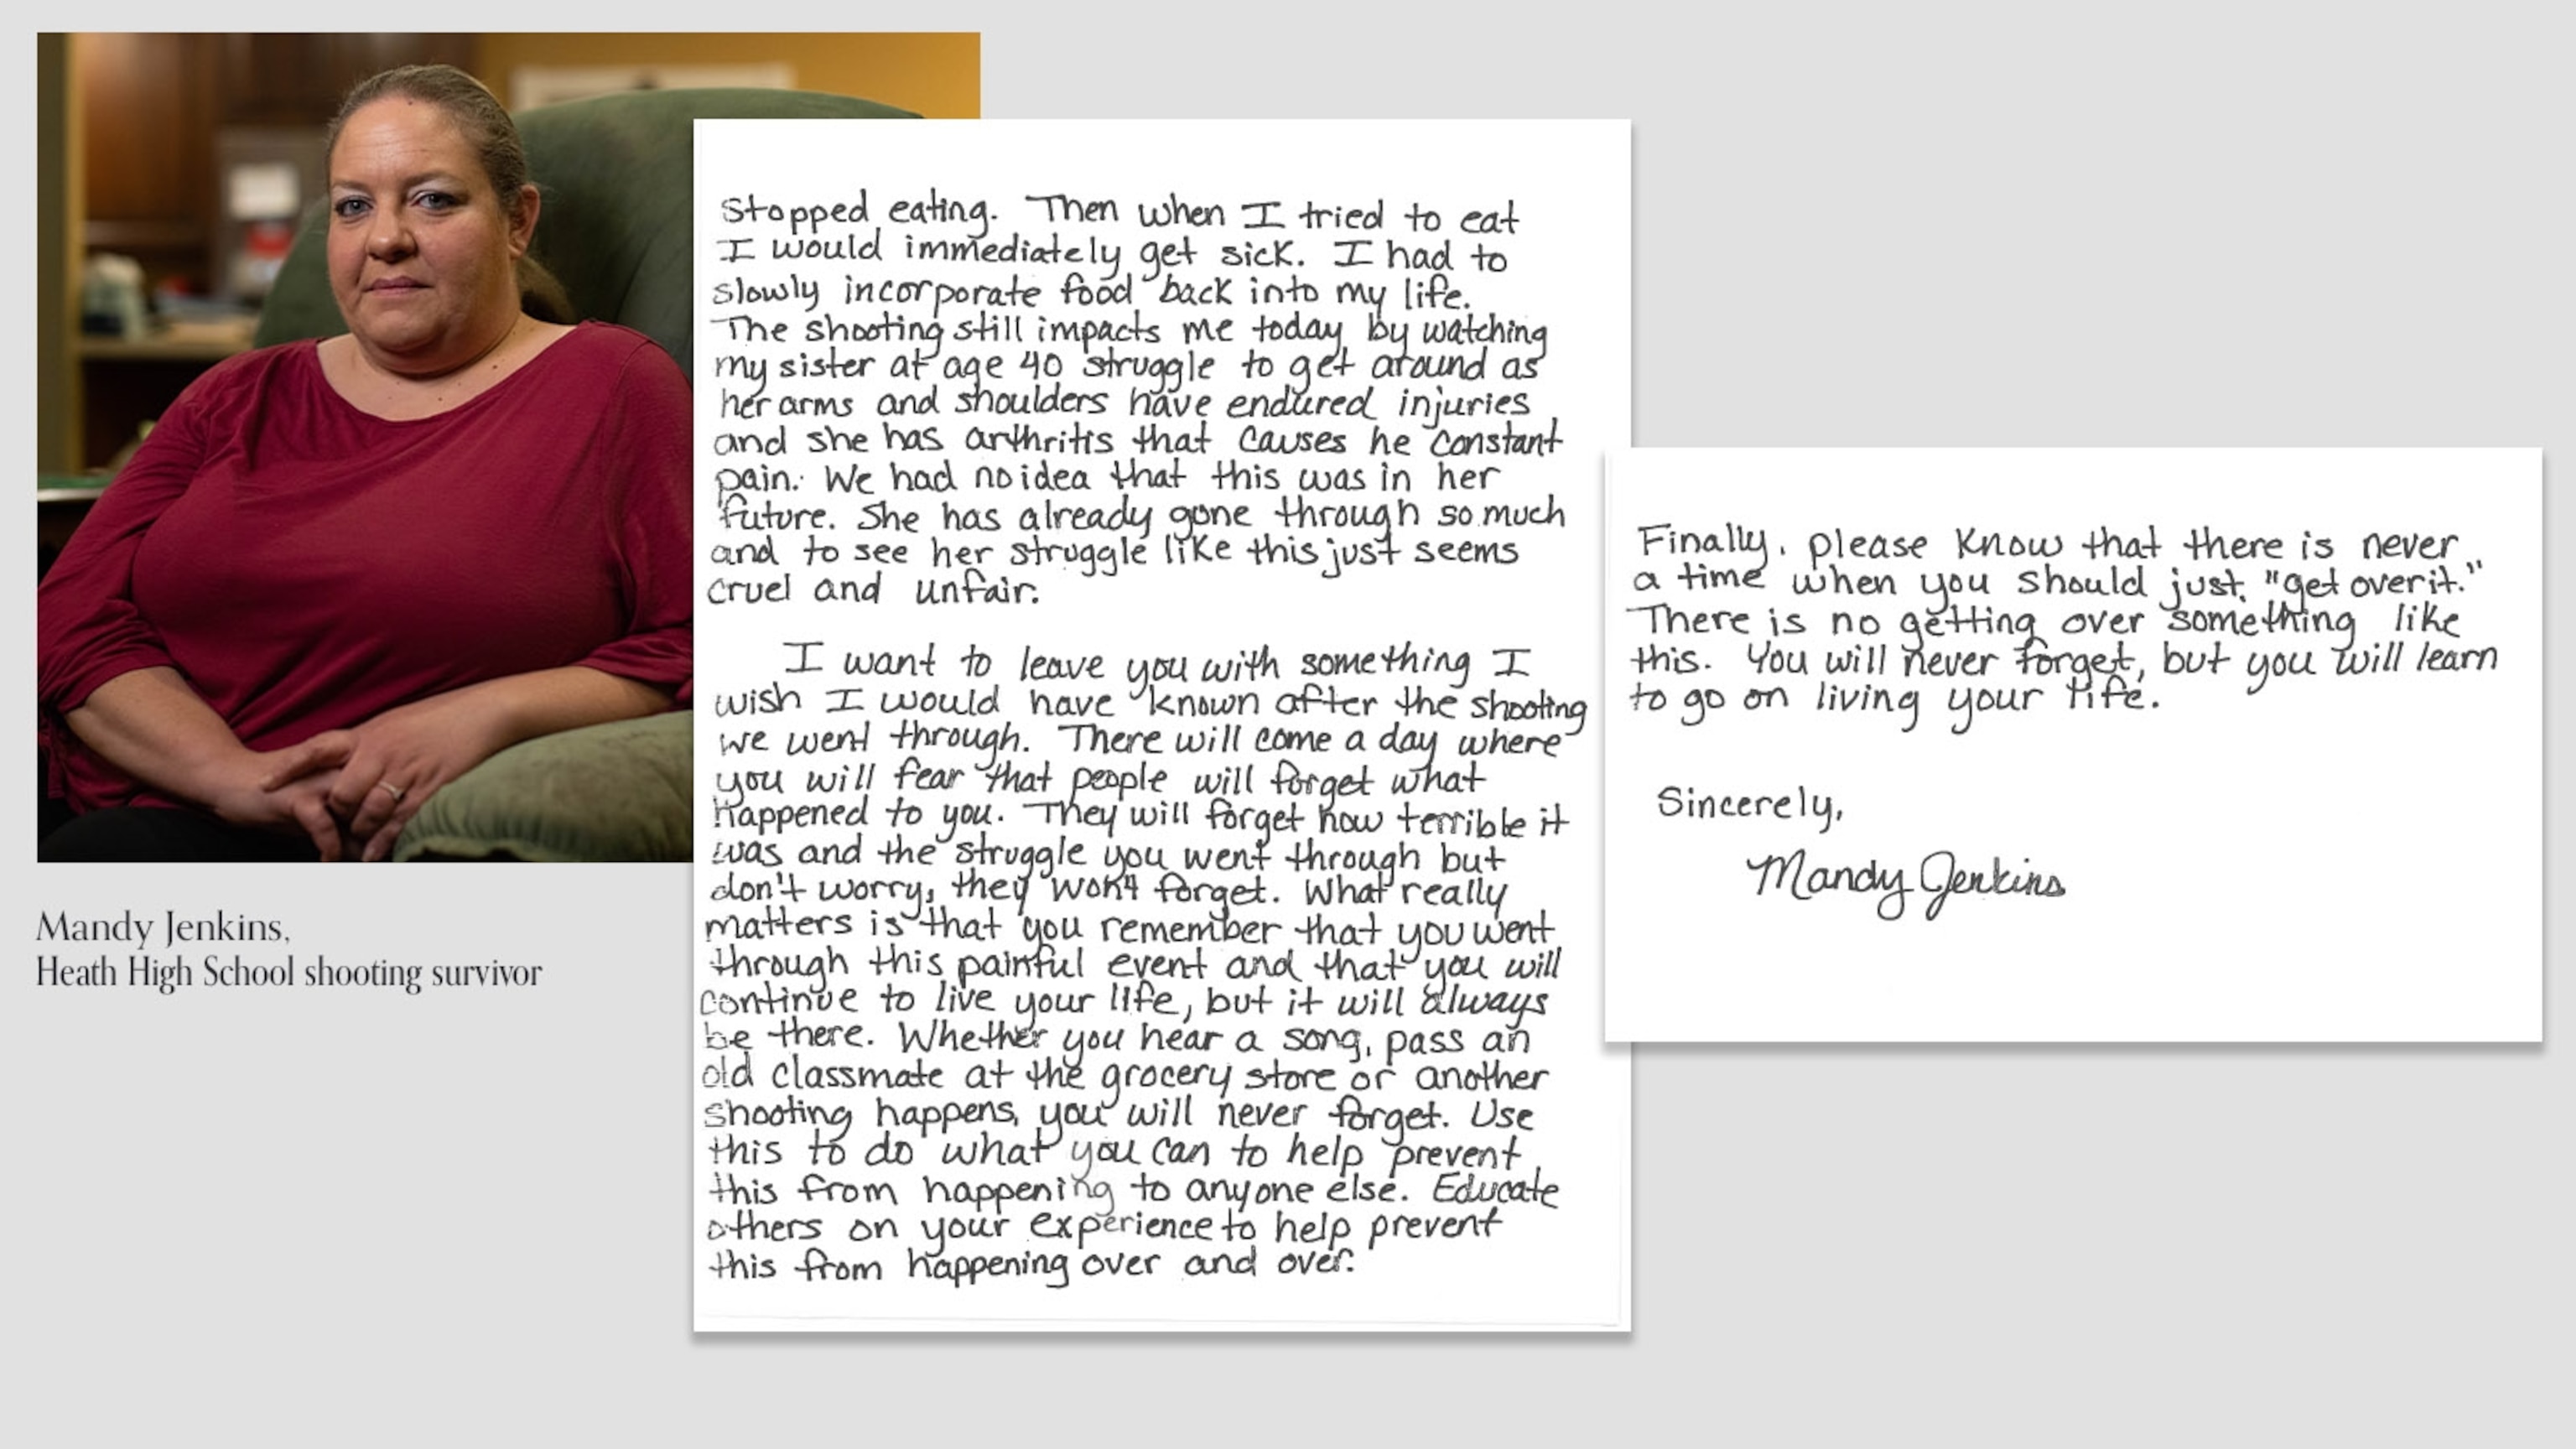 Stopped eating. Then when I tried to eat
I would immediately get sick. I had to
slowly incorporate food back into my life.
The shooting still impacts me today by watching
my sister at age 40 struggle to get around as
her arms and shoulders have endured injuries
and she has arthritis that causes he constant
pain. We had no idea that this was in her
future. She has already gone through so much
and to see her struggle like this just seems
cruel and unfair.
I want to leave you with something I
wish I would have known after the shooting
we went through. There will come a day where
you will fear that people will forget what
happened to you. They will forget how terrible it
was and the struggle you went through but
don't worry, they won't forget. What really
matters is that you remember that you went
through this painful event and that you will
continue to live your life, but it will always
be there. Whether you hear a song, pass an
old classmate at the grocery store or another
shooting happens, you will never forget. Use
this to do what you can to help prevent
this from happening to anyone else. Educate
others on your experience to help prevent
this from happening over and over.
Finally, please know that there is never
a time when you should just "get over it."
There is no getting over something like
this. You will never forget, but you will learn
to go on living your life.
Sincerely,
Mandy Jenkins
Mandy Jenkins,
Heath High School shooting survivor